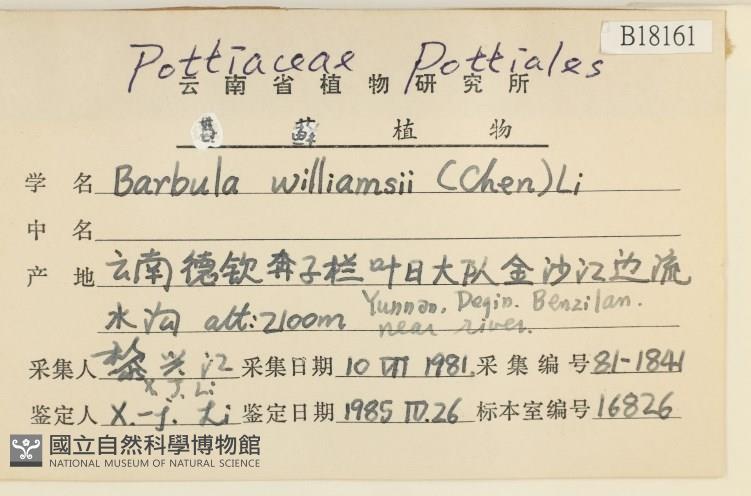 B18161
Pottiaceae Pottiales
云南省植物研究所
苔藓植物
学名 Barbula williamsii (Chen) Li
中名
产地 云南德钦奔子栏叶日大队金沙江边流
水沟 alt: 2100m Yunnan. Deqin. Benzilan.
near river.
采集人 黎兴江 采集日期 10 VIII 1981. 采集编号 81-1841
X. J. Li
鉴定人 X.-j. Li 鉴定日期 1985 IV. 26 标本室编号 16826
國立自然科學博物館
NATIONAL MUSEUM OF NATURAL SCIENCE